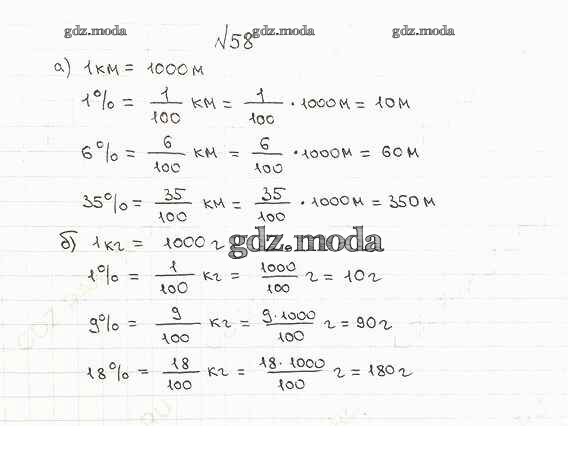 gdz.moda gdz.moda gdz.moda
№58
а) 1км = 1000м
1% = 1/100 км = 1/100 · 1000м = 10м
6% = 6/100 км = 6/100 · 1000м = 60м
35% = 35/100 км = 35/100 · 1000м = 350м
б) 1кг = 1000г gdz.moda
1% = 1/100 кг = 1000/100 г = 10г
9% = 9/100 кг = 9·1000/100 г = 90г
18% = 18/100 кг = 18·1000/100 г = 180г